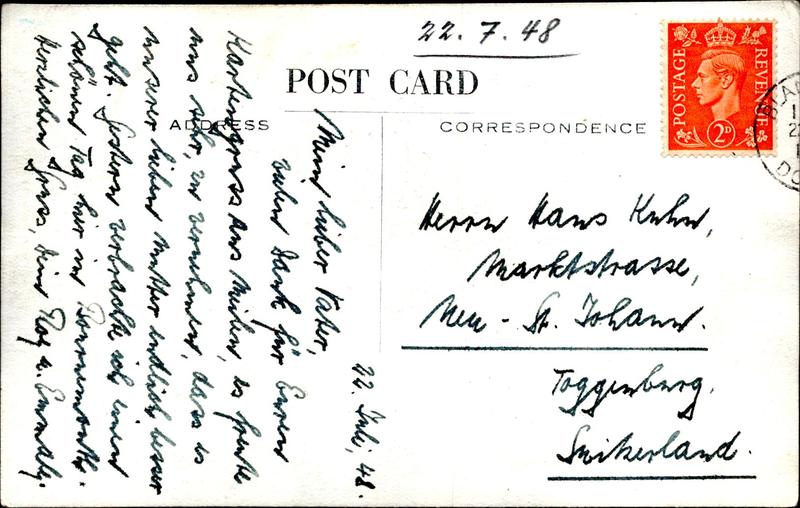 22. 7. 48
POST CARD
ADDRESS
CORRESPONDENCE
POSTAGE
REVENUE
2D
22. Juli, 48.
Mein lieber Vater,
vielen Dank für Euren
Kartengruss aus Meilen, es freute
uns sehr, zu vernehmen, dass es
unserer lieben Mutter endlich besser
geht. Gestern verbrachte ich einen
schönen Tag hier in Bournemouth.
Herzlichen Gruss, Dein
Herrn Hans Kuhn,
Marktstrasse,
Neu - St. Johann.
Toggenburg,
Switzerland.